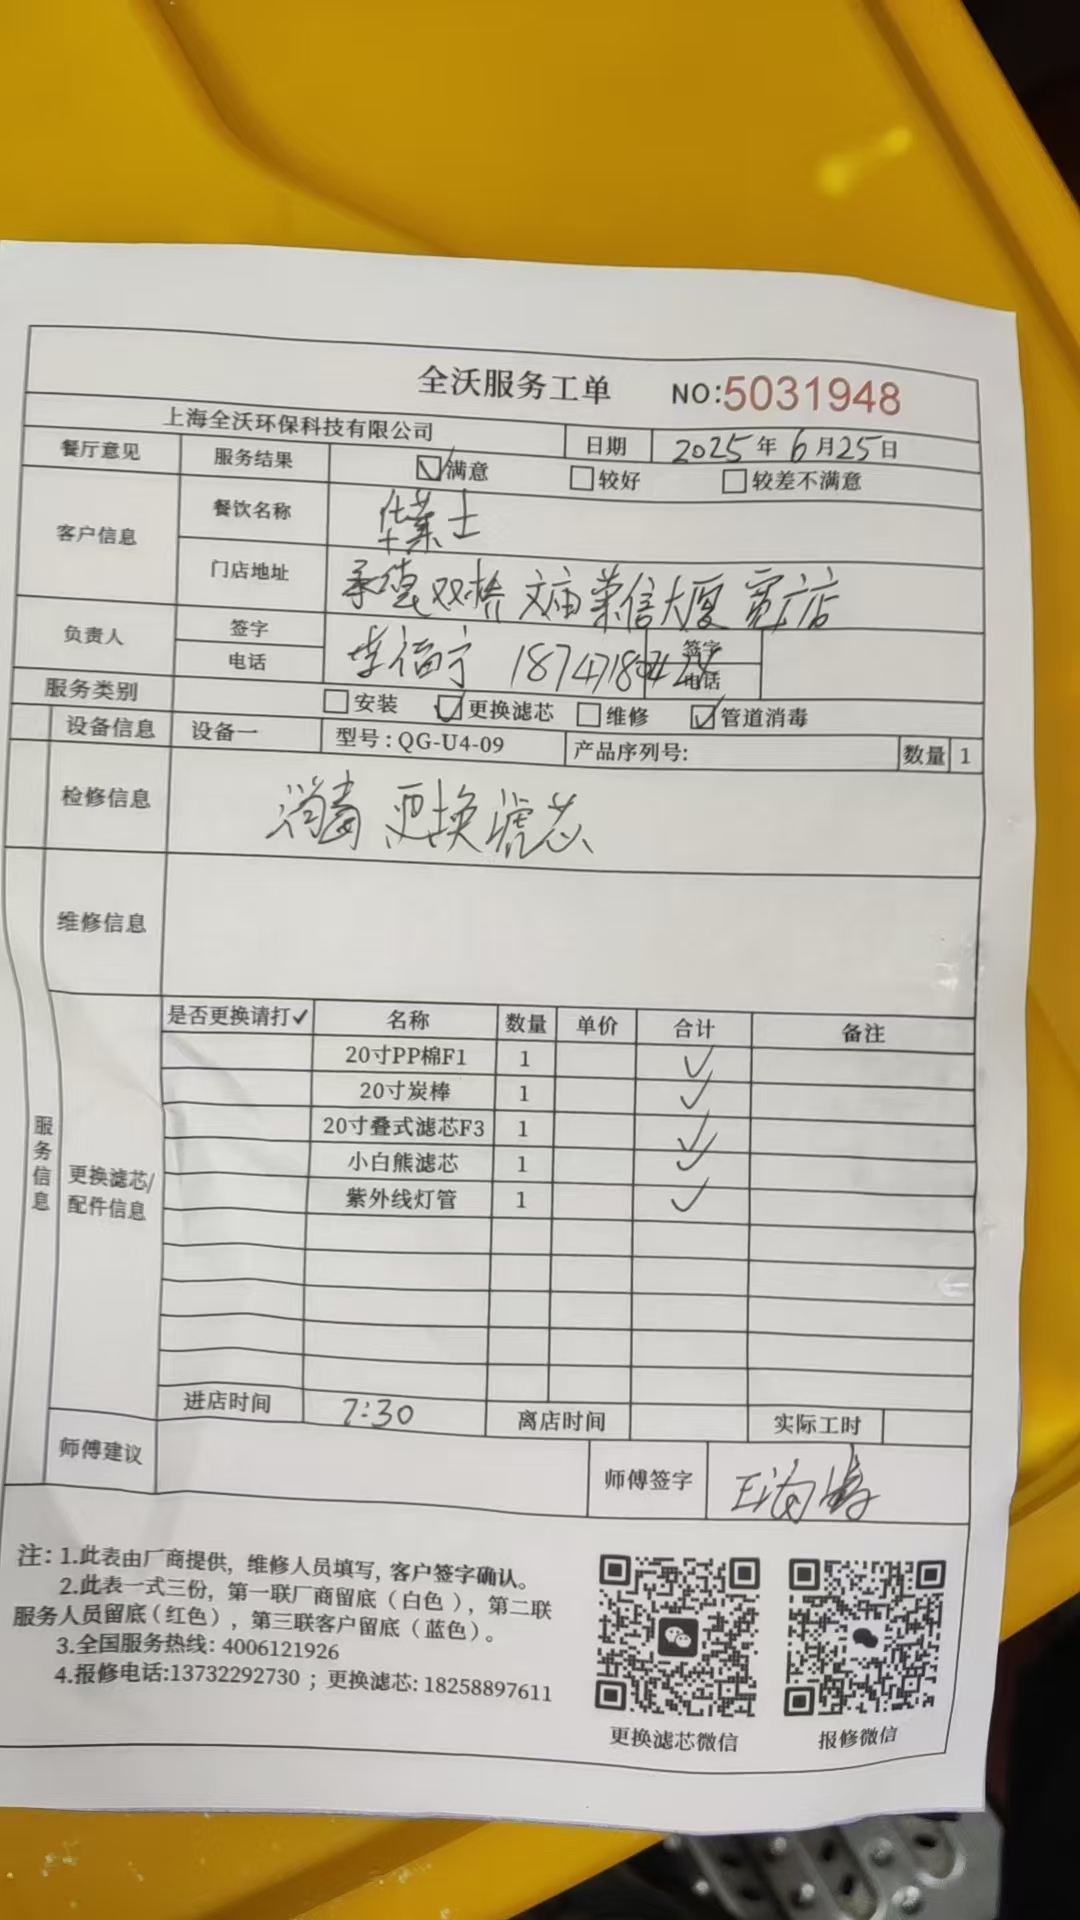 全沃服务工单 NO:5031948
上海全沃环保科技有限公司 日期 2025年6月25日
餐厅意见 服务结果 满意 较好 较差不满意
客户信息 餐饮名称 华莱士
门店地址 承德双桥文庙荣信大厦宽广店
负责人 签字 李福宁 签字
电话 电话
服务类别 安装 更换滤芯 维修 管道消毒
设备信息 设备一 型号:QG-U4-09 产品序列号: 数量 1
检修信息 消毒 更换滤芯
维修信息
服务信息
更换滤芯/配件信息
是否更换请打✓ 名称 数量 单价 合计 备注
20寸PP棉F1 1 ✓
20寸炭棒 1 ✓
20寸叠式滤芯F3 1 ✓
小白熊滤芯 1 ✓
紫外线灯管 1 ✓
进店时间 7:30 离店时间 实际工时
师傅建议 师傅签字
注: 1.此表由厂商提供, 维修人员填写, 客户签字确认。
2.此表一式三份, 第一联厂商留底(白色), 第二联
服务人员留底(红色), 第三联客户留底(蓝色)。
3.全国服务热线: 4006121926
4.报修电话:13732292730 ; 更换滤芯: 18258897611
更换滤芯微信 报修微信